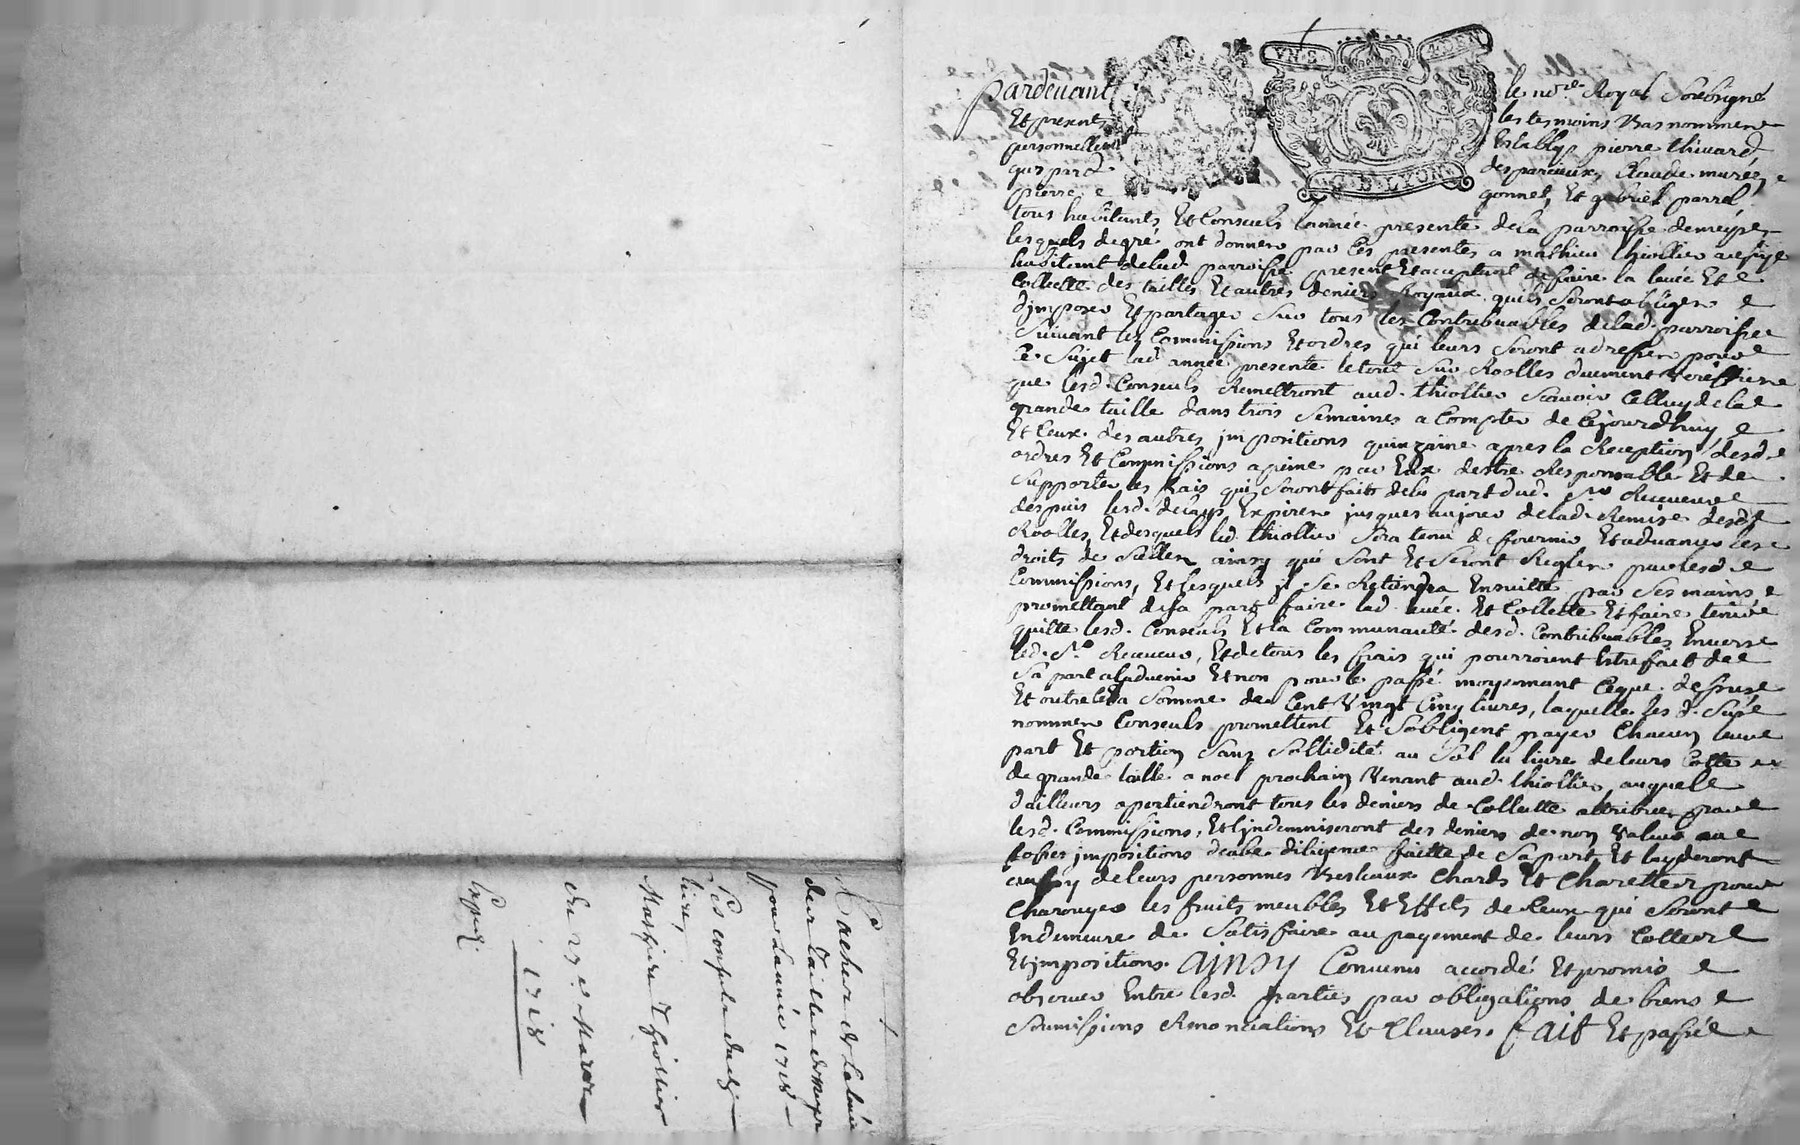 pardevant le no.re Royal Soubsigné
Et presents les tesmoins bas nommen
personnellem Establys pierre thivard
des parvieux, Claude murén
pierre gonnet, Et gabriel parrel
tous habitants Et Consuls lannée presente dela parroisse demeÿs
lesquels degré ont donnen par Ces presentes a mathieu thiollier
habitant delad. parroisse present Et acceptant defaire la levée Et
Collecte des tailles Et autres deniers Royaux quils Seront obligen
dimposer Et partager Sur tous les Contribuables delad. parroisse
Suivant les Commissions Et ordres qui leurs Seront adressen pour
Ce Sujet lad. année presente le tout Sur Roolles duement veriffien
que lesd. Consuls Remettront aud. thiollier Scavoir Celluy dela
grande taille dans trois Semaines a Compter de Cejourdhuy
Et Ceux des autres jmpositions quinzaine apres la Reception desd.
ordres Et Commissions a peine par Eux destre Responsable Et de
Supporter les frais qui Seront faits dela part dud. Sr. Receveur
despuis lesd. delays Expiren jusques au jour delad. Remise desd.
Roolles, Et desquels led. thiollier Sera tenu de fournir Et advancer les
droits de Scellen ainsy qui Sont Et Seront Reglen par lesd.
Commissions, Et lesquels jl Se Retiendra Ensuitte par Ses mains
promettant de Sa part faire lad. levée Et Collecte Et faire tenir
quitte lesd. Consuls Et la Communauté desd. Contribuables Envers
led. Sr. Receveur, Et de tous les frais qui pourroient Estre fait de
Sa part aladvenir Et non pour le passé moyennant Ceque dessus
Et outre la Somme de Cent vingt Cinq livres, laquelle les d. Sus
nommen Consuls promettent Et Sobligent payer Chacun leur
part Et portion Sans Sollidité au Sol la livre de leurs Cotte
de grande taille a noel prochain venant aud. thiollier, auquel
dailleurs apartiendront tous les deniers de Collecte attribuen par
lesd. Commissions, Et lindemniseront des deniers de non valeur
jmpositions diligence faitte de Sa part, Et layderont
de leurs personnes bestiaux Chards Et Charettes pour
Charroyer les fruits meubles Et Effets de Ceux qui Seront
Endemeure de Satisfaire au payement de leurs Cottes
Et jmpositions. Ainsy Convenu accordé Et promis
observer Entre lesd. parties par obligations de biens
Soumissions Renonciations Et Clauses. fait Et passé
de la levée
des tailles de meys
pour Lannée 1718
Les consuls dud.
lieu,
Mathieu Thiollier
du 27e Mars
1718
Exped.